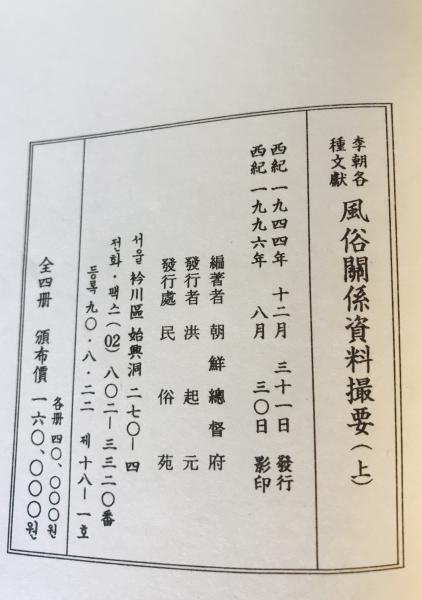 李朝各種文獻 風俗關係資料撮要(上)
西紀 一九四四年 十二月 三十一日 發行
西紀 一九九六年 八月 三〇日 影印
編著者 朝鮮總督府
發行者 洪起元
發行處 民俗苑
서울 衿川區 始興洞 二七〇-四
전화·팩스(02) 八〇二-三三二〇番
등록 九〇·八·二二 제 十八-一호
各册 四〇、〇〇〇원
全四册 頒布價 一六〇、〇〇〇원